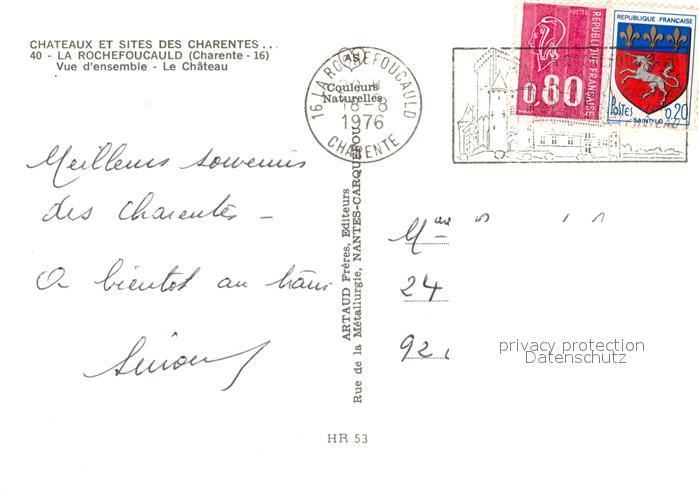 CHATEAUX ET SITES DES CHARENTES ...
40 - LA ROCHEFOUCAULD (Charente - 16)
Vue d'ensemble - Le Château
AS
Couleurs
Naturelles
16 LA ROCHEFOUCAULD
18-8
1976
CHARENTE
REPUBLIQUE FRANÇAISE
0,80
REPUBLIQUE FRANÇAISE
POSTES
0,20
SAINT-LO
CHATEAU
Meilleurs souvenirs
des Charentes -
A bientôt au
ARTAUD Frères, Editeurs
Rue de la Métallurgie, NANTES-CARQUEFOU
Mme
24
92
privacy protection
Datenschutz
HR 53